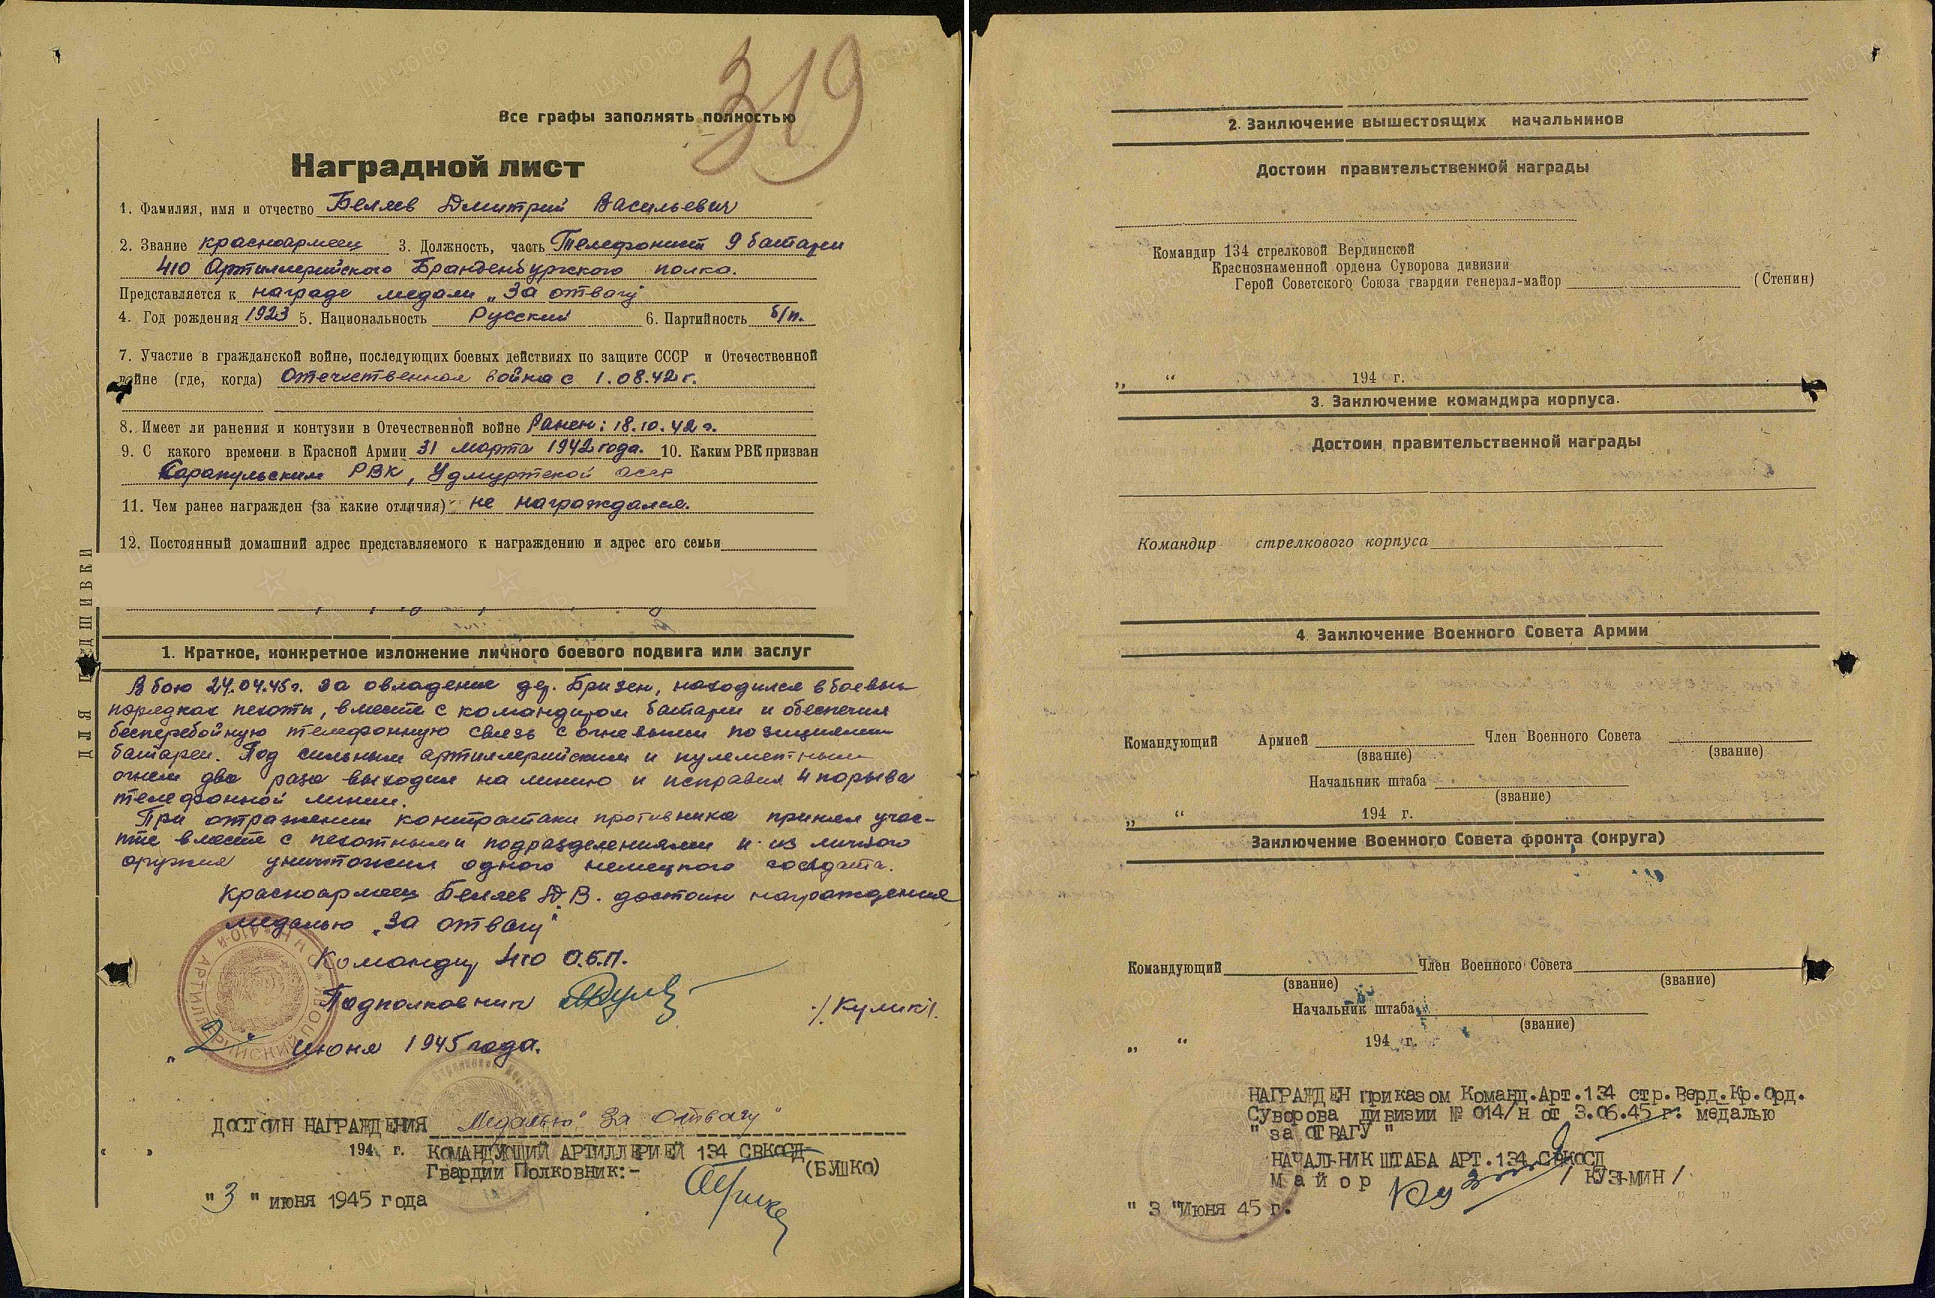 319
Все графы заполнять полностью
Наградной лист
1. Фамилия, имя и отчество Беляев Дмитрий Васильевич
2. Звание красноармеец 3. Должность, часть Телефонист 9 батареи
410 Артиллерийского Бранденбургского полка.
Представляется к награде медали „За отвагу"
4. Год рождения 1923 5. Национальность Русский 6. Партийность б/п.
7. Участие в гражданской войне, последующих боевых действиях по защите СССР и Отечественной
войне (где, когда) Отечественная война с 1.08.42 г.
8. Имеет ли ранения и контузии в Отечественной войне Ранен: 18.10.42 г.
9. С какого времени в Красной Армии 31 марта 1942 года. 10. Каким РВК призван
Сарапульским РВК, Удмуртской асср
11. Чем ранее награжден (за какие отличия) не награждался.
12. Постоянный домашний адрес представляемого к награждению и адрес его семьи
ДЛЯ ПОДШИВКИ
1. Краткое, конкретное изложение личного боевого подвига или заслуг
В бою 24.04.45 г. за овладение дер. Бризен, находился в боевых
порядках пехоты, вместе с командиром батареи и обеспечил
бесперебойную телефонную связь с огневыми позициями
батареи. Под сильным артиллерийским и пулеметным
огнем два раза выходил на линию и исправил 4 порыва
телефонной линии.
При отражении контратаки противника принял учас-
тие вместе с пехотными подразделениями и из личного
оружия уничтожил одного немецкого солдата.
Красноармеец Беляев Д.В. достоин награждения
медалью „За отвагу"
Командир 410
Подполковник /Кулик/.
„2" Июня 1945 года.
ДОСТОИН НАГРАЖДЕНИЯ Медалью "За Отвагу"
194 г. КОМАНДУЮЩИЙ АРТИЛЛЕРИЕЙ 134 СВКОСД
Гвардии Полковник:- (БУШКО)
"3" июня 1945 года
2. Заключение вышестоящих начальников
Достоин правительственной награды
Командир 134 стрелковой Вердинской
Краснознаменной ордена Суворова дивизии
Герой Советского Союза гвардии генерал-майор (Стенин)
„ “ 194 г.
3. Заключение командира корпуса.
Достоин правительственной награды
Командир стрелкового корпуса
4. Заключение Военного Совета Армии
Командующий Армией Член Военного Совета
(звание) (звание)
Начальник штаба
(звание)
„ “ 194 г.
Заключение Военного Совета фронта (округа)
Командующий Член Военного Совета
(звание) (звание)
Начальник штаба
(звание)
„ “ 194 г.
НАГРАЖДЕН приказом Команд.Арт.134 стр.Верд.Кр.Орд.
Суворова дивизии № 014/н от 3.06.45 г. медалью
" за ОТВАГУ "
НАЧАЛЬНИК ШТАБА АРТ.134 СВКОСД
Майор /КУЗЬМИН/
" 3 "Июня 45 г.